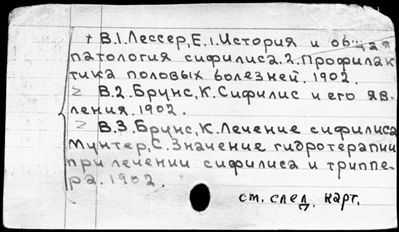 + В.1. Лессер, Е. 1. История и общая
патология сифилиса. 2. Профилак
тика половых болезней. 1902.
≥ В.2. Брунс, К. Сифилис и его яв.
ления. 1902.
≥ В.3. Брунс, К. Лечение сифилиса
Мунтер, С. Значение гидротерапии
при лечении сифилиса и триппе-
ра. 1902.
см. след. карт.